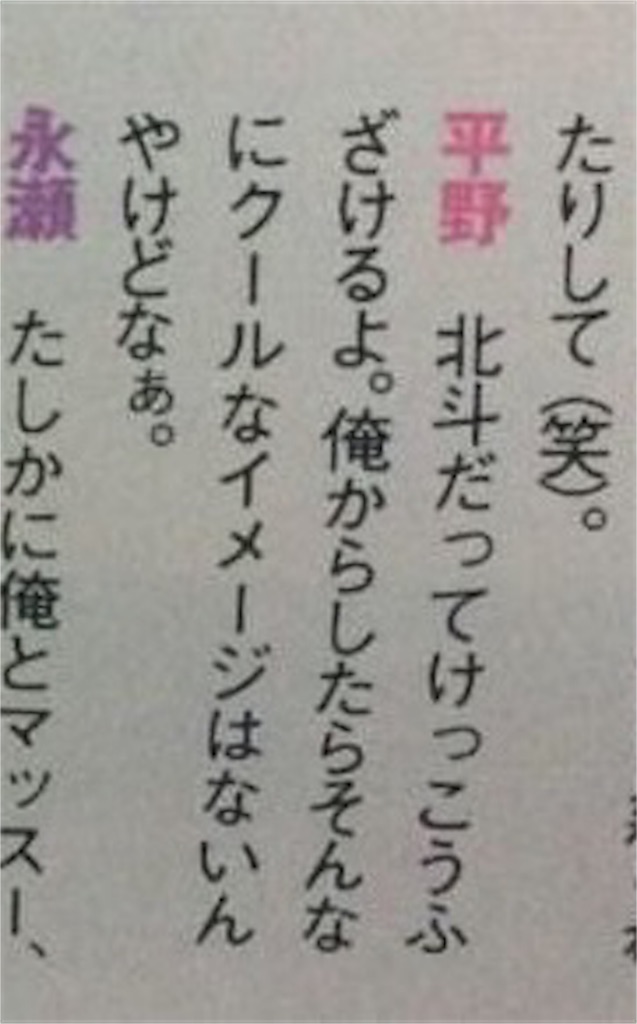 たりして（笑）。
平野　北斗だってけっこうふ
ざけるよ。俺からしたらそんな
にクールなイメージはないん
やけどなぁ。
永瀬　たしかに俺とマッスー、